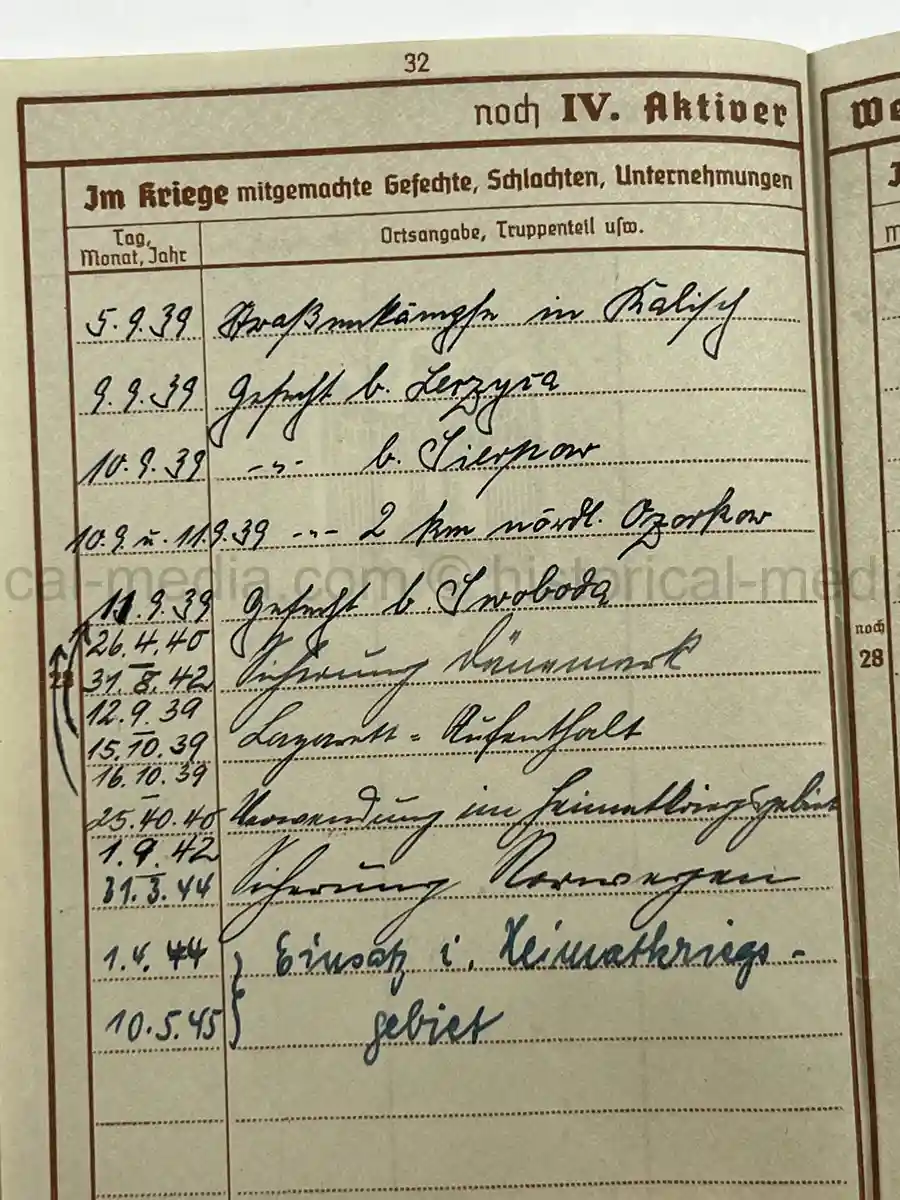 32
noch IV. Aktiver
We
Im Kriege mitgemachte Gefechte, Schlachten, Unternehmungen
Tag, Monat, Jahr
Ortsangabe, Truppenteil usw.
5.9.39 Straßenkämpfe in Kalisch
9.9.39 Gefecht b. Lerzyca
10.9.39 -"- b. Sierpow
10.9 u. 11.9.39 -"- 2 km nördl. Ozorkow
cal-media.com © historical-med
11.9.39 Gefecht b. Swoboda
noch
28
26.4.40
31.8.42 Sicherung Dänemark
12.9.39
15.10.39 Lazarett-Aufenthalt
16.10.39
25.10.40 Verwendung im Heimatkriegsgebiet
1.9.42
31.3.44 Sicherung Norwegen
1.4.44 } Einsatz i. Heimatkriegs-
10.5.45 } gebiet